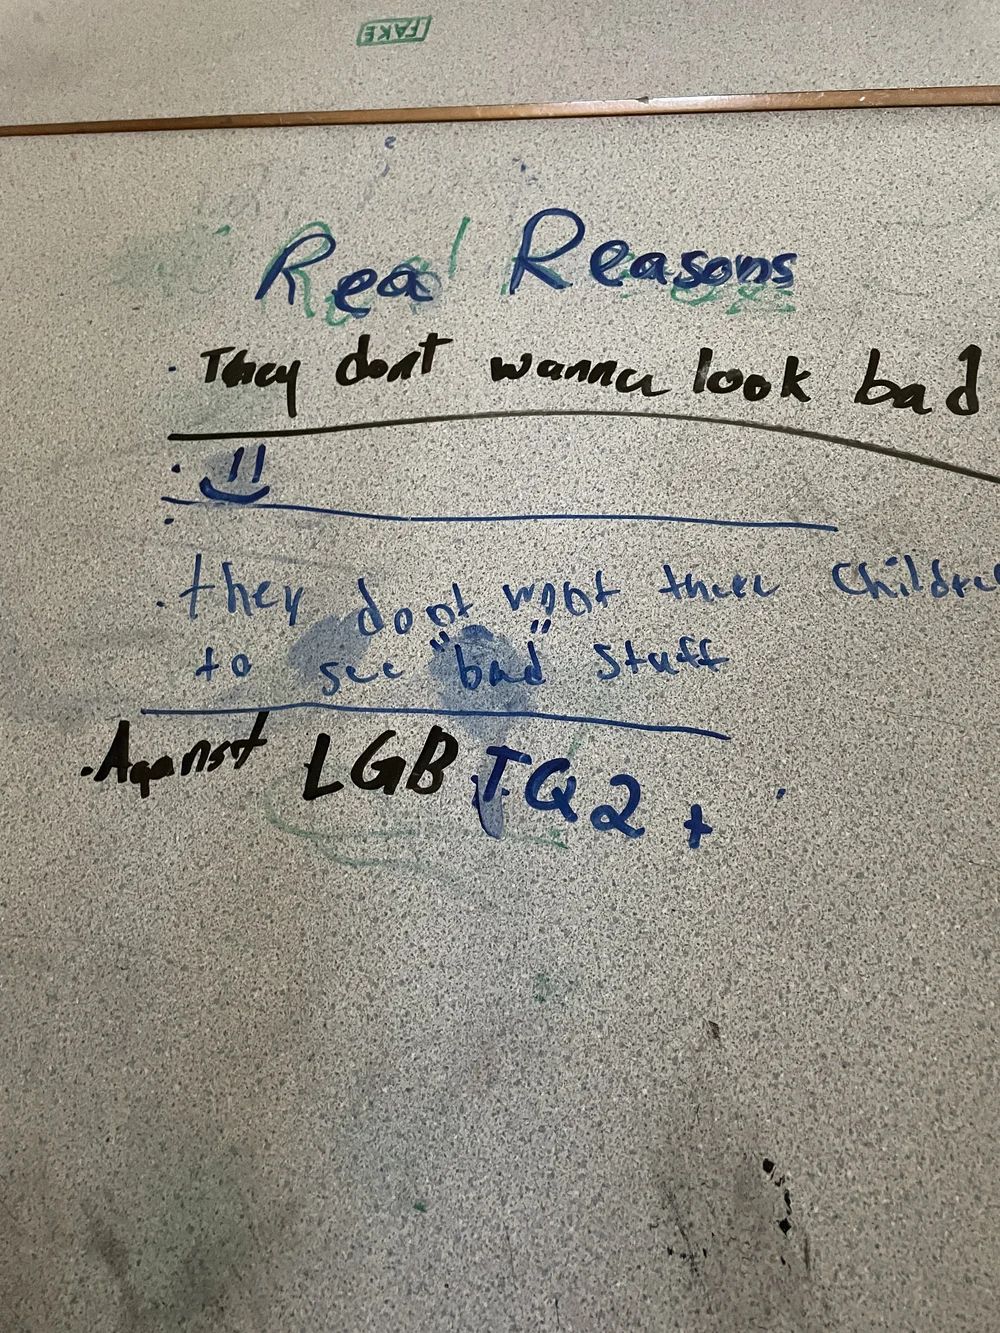 FAKE
Real Reasons
· They dont wanna look bad
·
· they dont wont there Childre
to see "bad" stuff
· Against LGBTQ2+